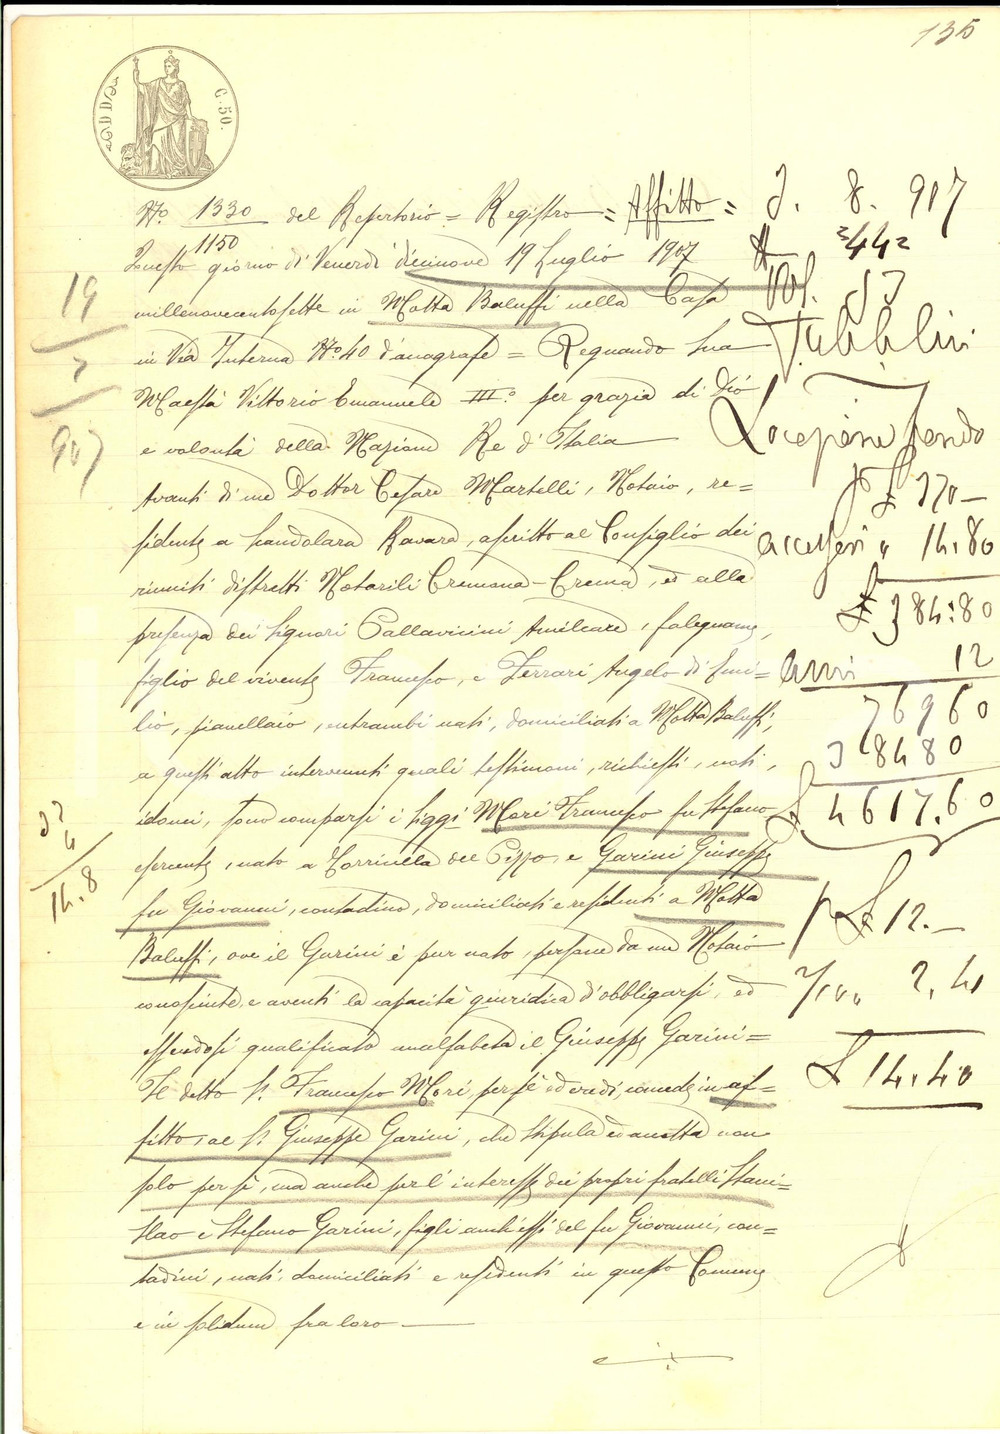 135
C. 50.
No. 1330 del Repertorio = Registro = Affitto =
1150
Questo giorno di Venerdì diecinove 19 Luglio 1907
millenovecentosette in Motta Baluffi nella Casa
in Via Interna No. 40 d'anagrafe = Regnando Sua
Maestà Vittorio Emanuele III.° per grazia di Dio
e volontà della Nazione Re d'Italia
Avanti di me Dottor Cesare Martelli, Notaio, re=
sidente a Scandolara Ravara, ascritto al Consiglio dei
riuniti distretti Notarili Cremona-Crema, ed alla
presenza dei Signori Pallavicini Amilcare, falegname,
figlio del vivente Francesco, e Ferrari Angelo di Emi=
lio, pianellaio, entrambi nati, domiciliati a Motta Baluffi,
a quest'atto intervenuti quali testimoni, richiesti, noti,
idonei, sono comparsi i Sigg.i Mori Francesco fu Stefano
esercente, nato a Torricella del Pizzo e Garini Giuseppe
fu Giovanni, contadino, domiciliati e residenti a Motta
Baluffi, ove il Garini è pur nato, persone da me Notaio
conosciute, e aventi la capacità giuridica d'obbligarsi, ed
essendosi qualificato analfabeta il Giuseppe Garini =
Il detto S.r Francesco Mori, per sè ed eredi, concede in af=
fitto, al S.r Giuseppe Garini, che stipula ed accetta non
solo per sè, ma anche per l'interesse dei propri fratelli Stani=
slao e Stefano Garini, figli anch'essi del fu Giovanni, con=
tadini, nati, domiciliati e residenti in questo Comune
e in solidum fra loro
19
7
907
14.8
3. 8. 907
N =44=
Vol. 57
Pubblici
Locazione fondo
p £ 370 -
accessori " 14.80
£ 384:80
anni 12
76960
38480
£ 4617.60
p £ 12. -
2, 40
£ 14.40